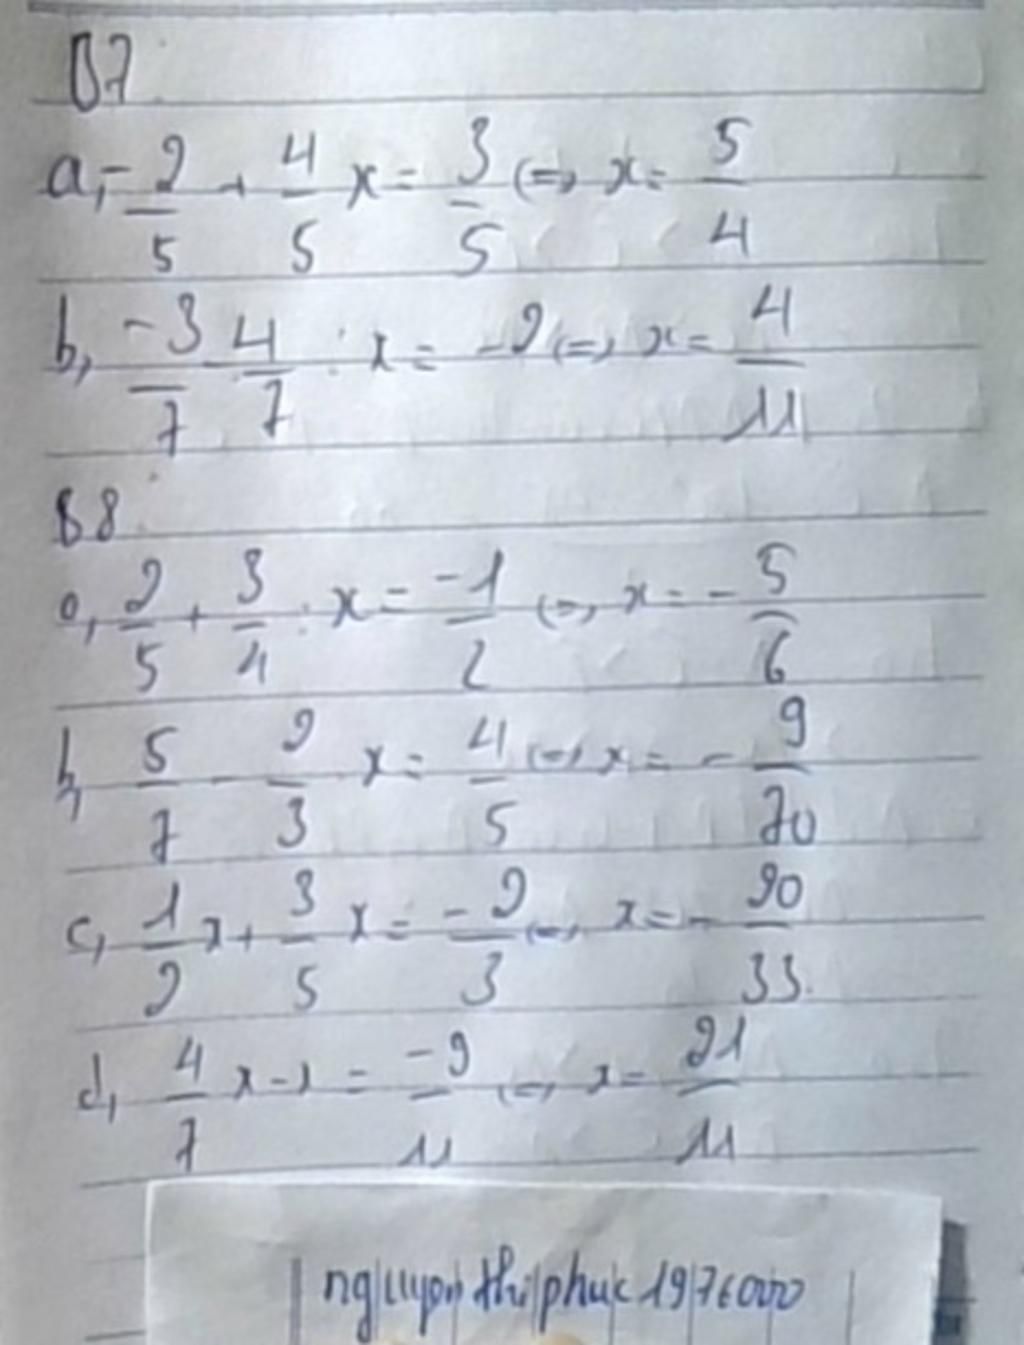 B7:
a, -2/5 + 4/5 x = 3/5 (=) x = 5/4
b, -3/7 - 4/7 : x = -2 (=) x = 4/11
B8:
a, 2/5 + 3/4 : x = -1/2 (=) x = - 5/6
b, 5/7 - 2/3 x = 4/5 (=) x = - 9/70
c, 1/2 x + 3/5 x = - 2/3 (=) x = - 20/33.
d, 4/7 x - x = -9/11 (=) x = 21/11
nguyen thi phuc 1976000